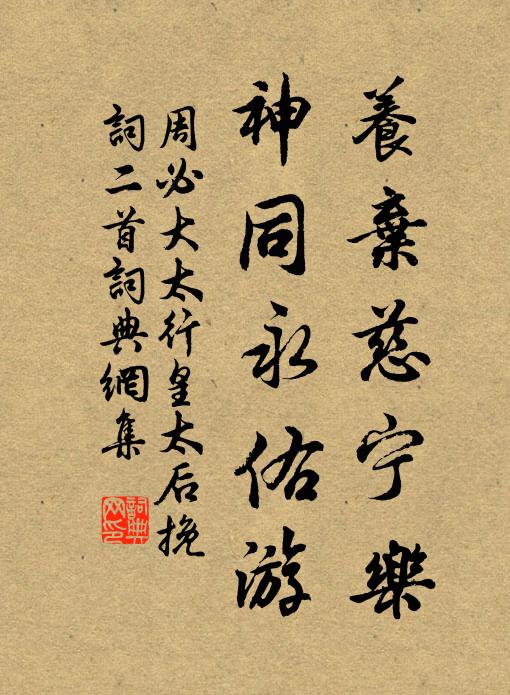 養棄慈宁樂
神同永佑游
周必大太行皇太后挽
詞二首詞典網集
詞典
网印